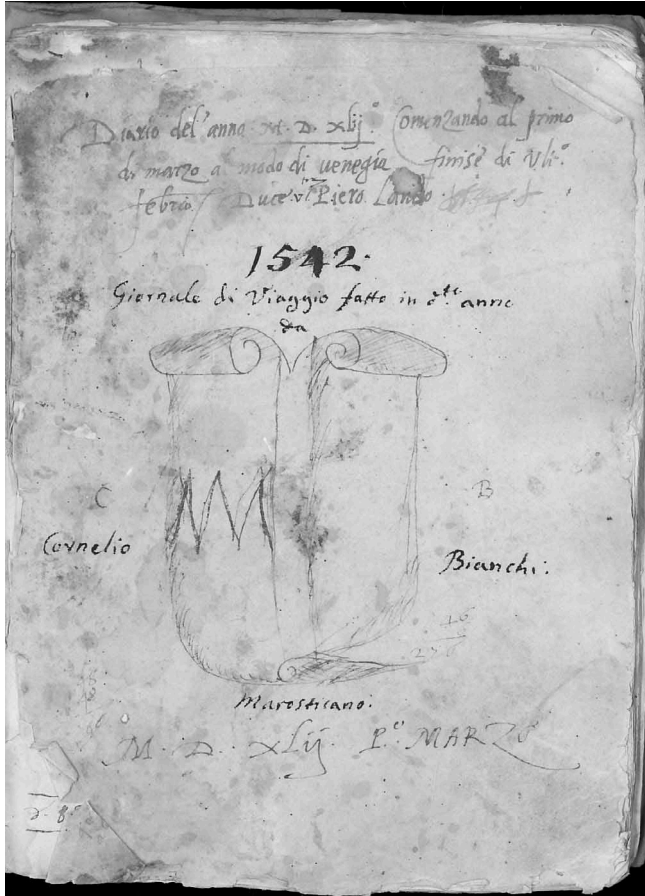 Diario del' anno M. D. xlij.° Comenzando al primo
di marzo al modo di venegia finisè di Ult.°
febrio / Duce Piero Lando
1542.
Giornale di Viaggio fatto in d.tto anno
da
M
C
B
Cornelio
Bianchi.
Marosticano.
M. D. xlij. P.° MARZO